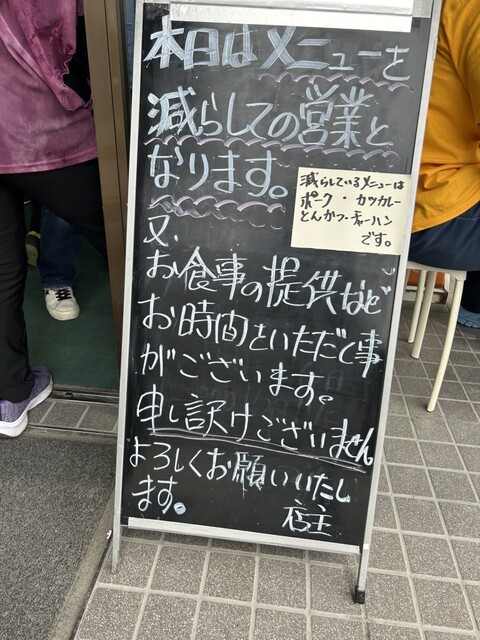 本日はメニューを
減らしての営業と
なります。
減らしているメニューは
ポーク・カツカレー
とんかつ・チャーハン
です。
又、
お食事の提供など
お時間をいただく事
がございます。
申し訳けございません
よろしくお願いいたし
ます。
店主